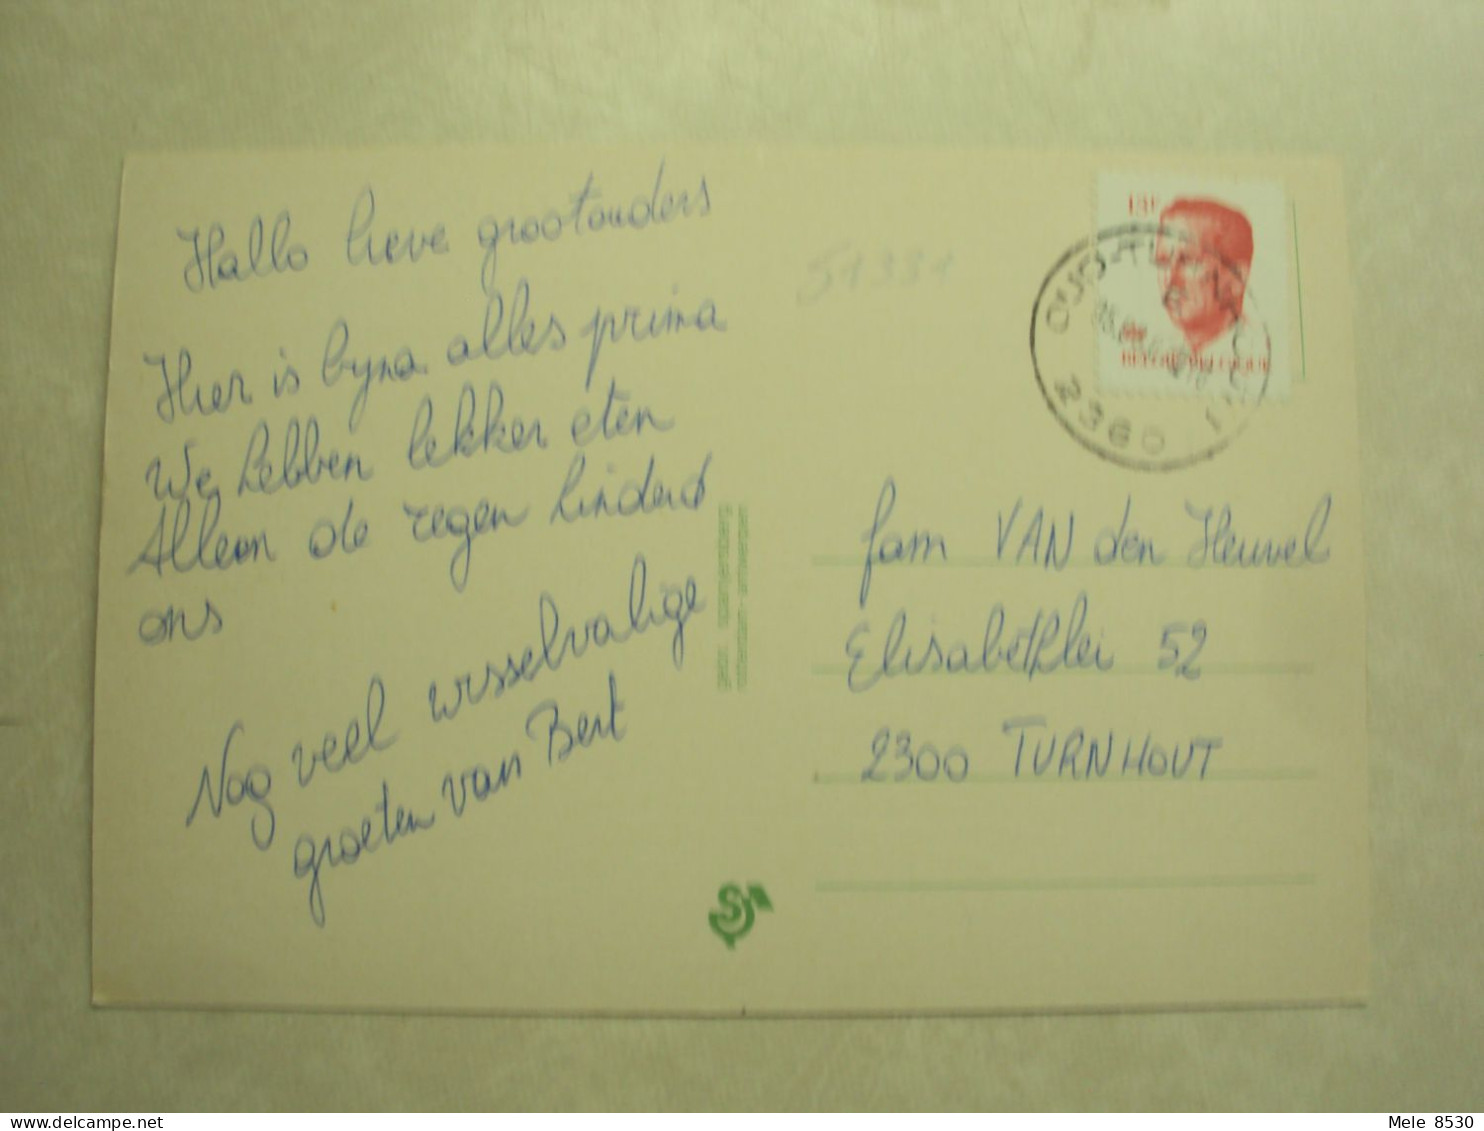 Hallo lieve grootouders
Hier is byna alles prima
We hebben lekker eten
Alleen de regen hinderd
ons
Nog veel wisselvalige
groeten van Bert
51331
13F
BELGIE-BELGIQUE
OUD-TURNHOUT
2360
fam VAN den Heuvel
Elisabethlei 52
2300 TURNHOUT
S
Mele 8530